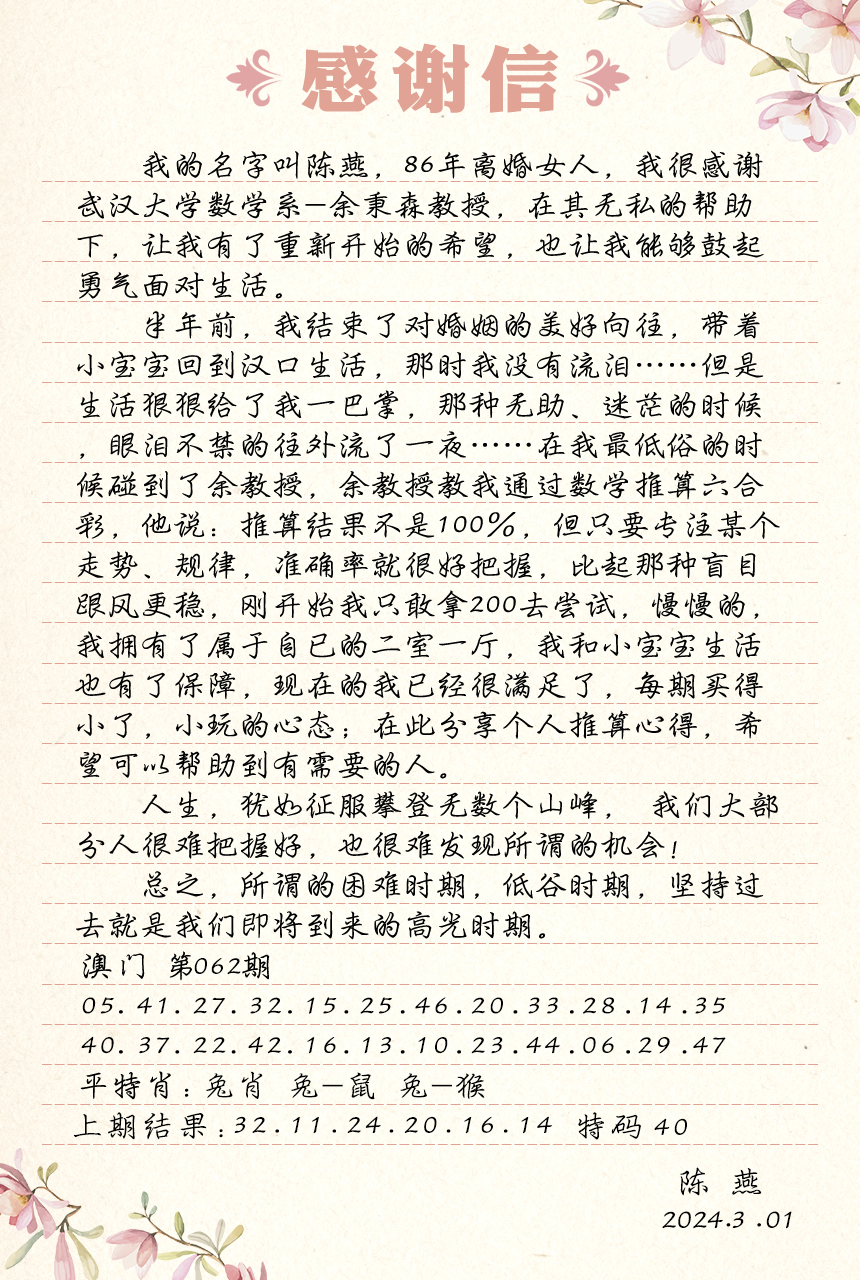 感谢信
我的名字叫陈燕，86年离婚女人，我很感谢
武汉大学数学系—余秉森教授，在其无私的帮助
下，让我有了重新开始的希望，也让我能够鼓起
勇气面对生活。
半年前，我结束了对婚姻的美好向往，带着
小宝宝回到汉口生活，那时我没有流泪……但是
生活狠狠给了我一巴掌，那种无助、迷茫的时候
，眼泪不禁的往外流了一夜……在我最低俗的时
候碰到了余教授，余教授教我通过数学推算六合
彩，他说：推算结果不是100%，但只要专注某个
走势、规律，准确率就很好把握，比起那种盲目
跟风更稳，刚开始我只敢拿200去尝试，慢慢的，
我拥有了属于自已的二室一厅，我和小宝宝生活
也有了保障，现在的我已经很满足了，每期买得
小了，小玩的心态；在此分享个人推算心得，希
望可以帮助到有需要的人。
人生，犹如征服攀登无数个山峰， 我们大部
分人很难把握好，也很难发现所谓的机会！
总之，所谓的困难时期，低谷时期，坚持过
去就是我们即将到来的高光时期。
澳门 第062期
05.41.27.32.15.25.46.20.33.28.14.35
40.37.22.42.16.13.10.23.44.06.29.47
平特肖：兔肖 兔—鼠 兔—猴
上期结果：32.11.24.20.16.14 特码 40
陈 燕
2024.3.01